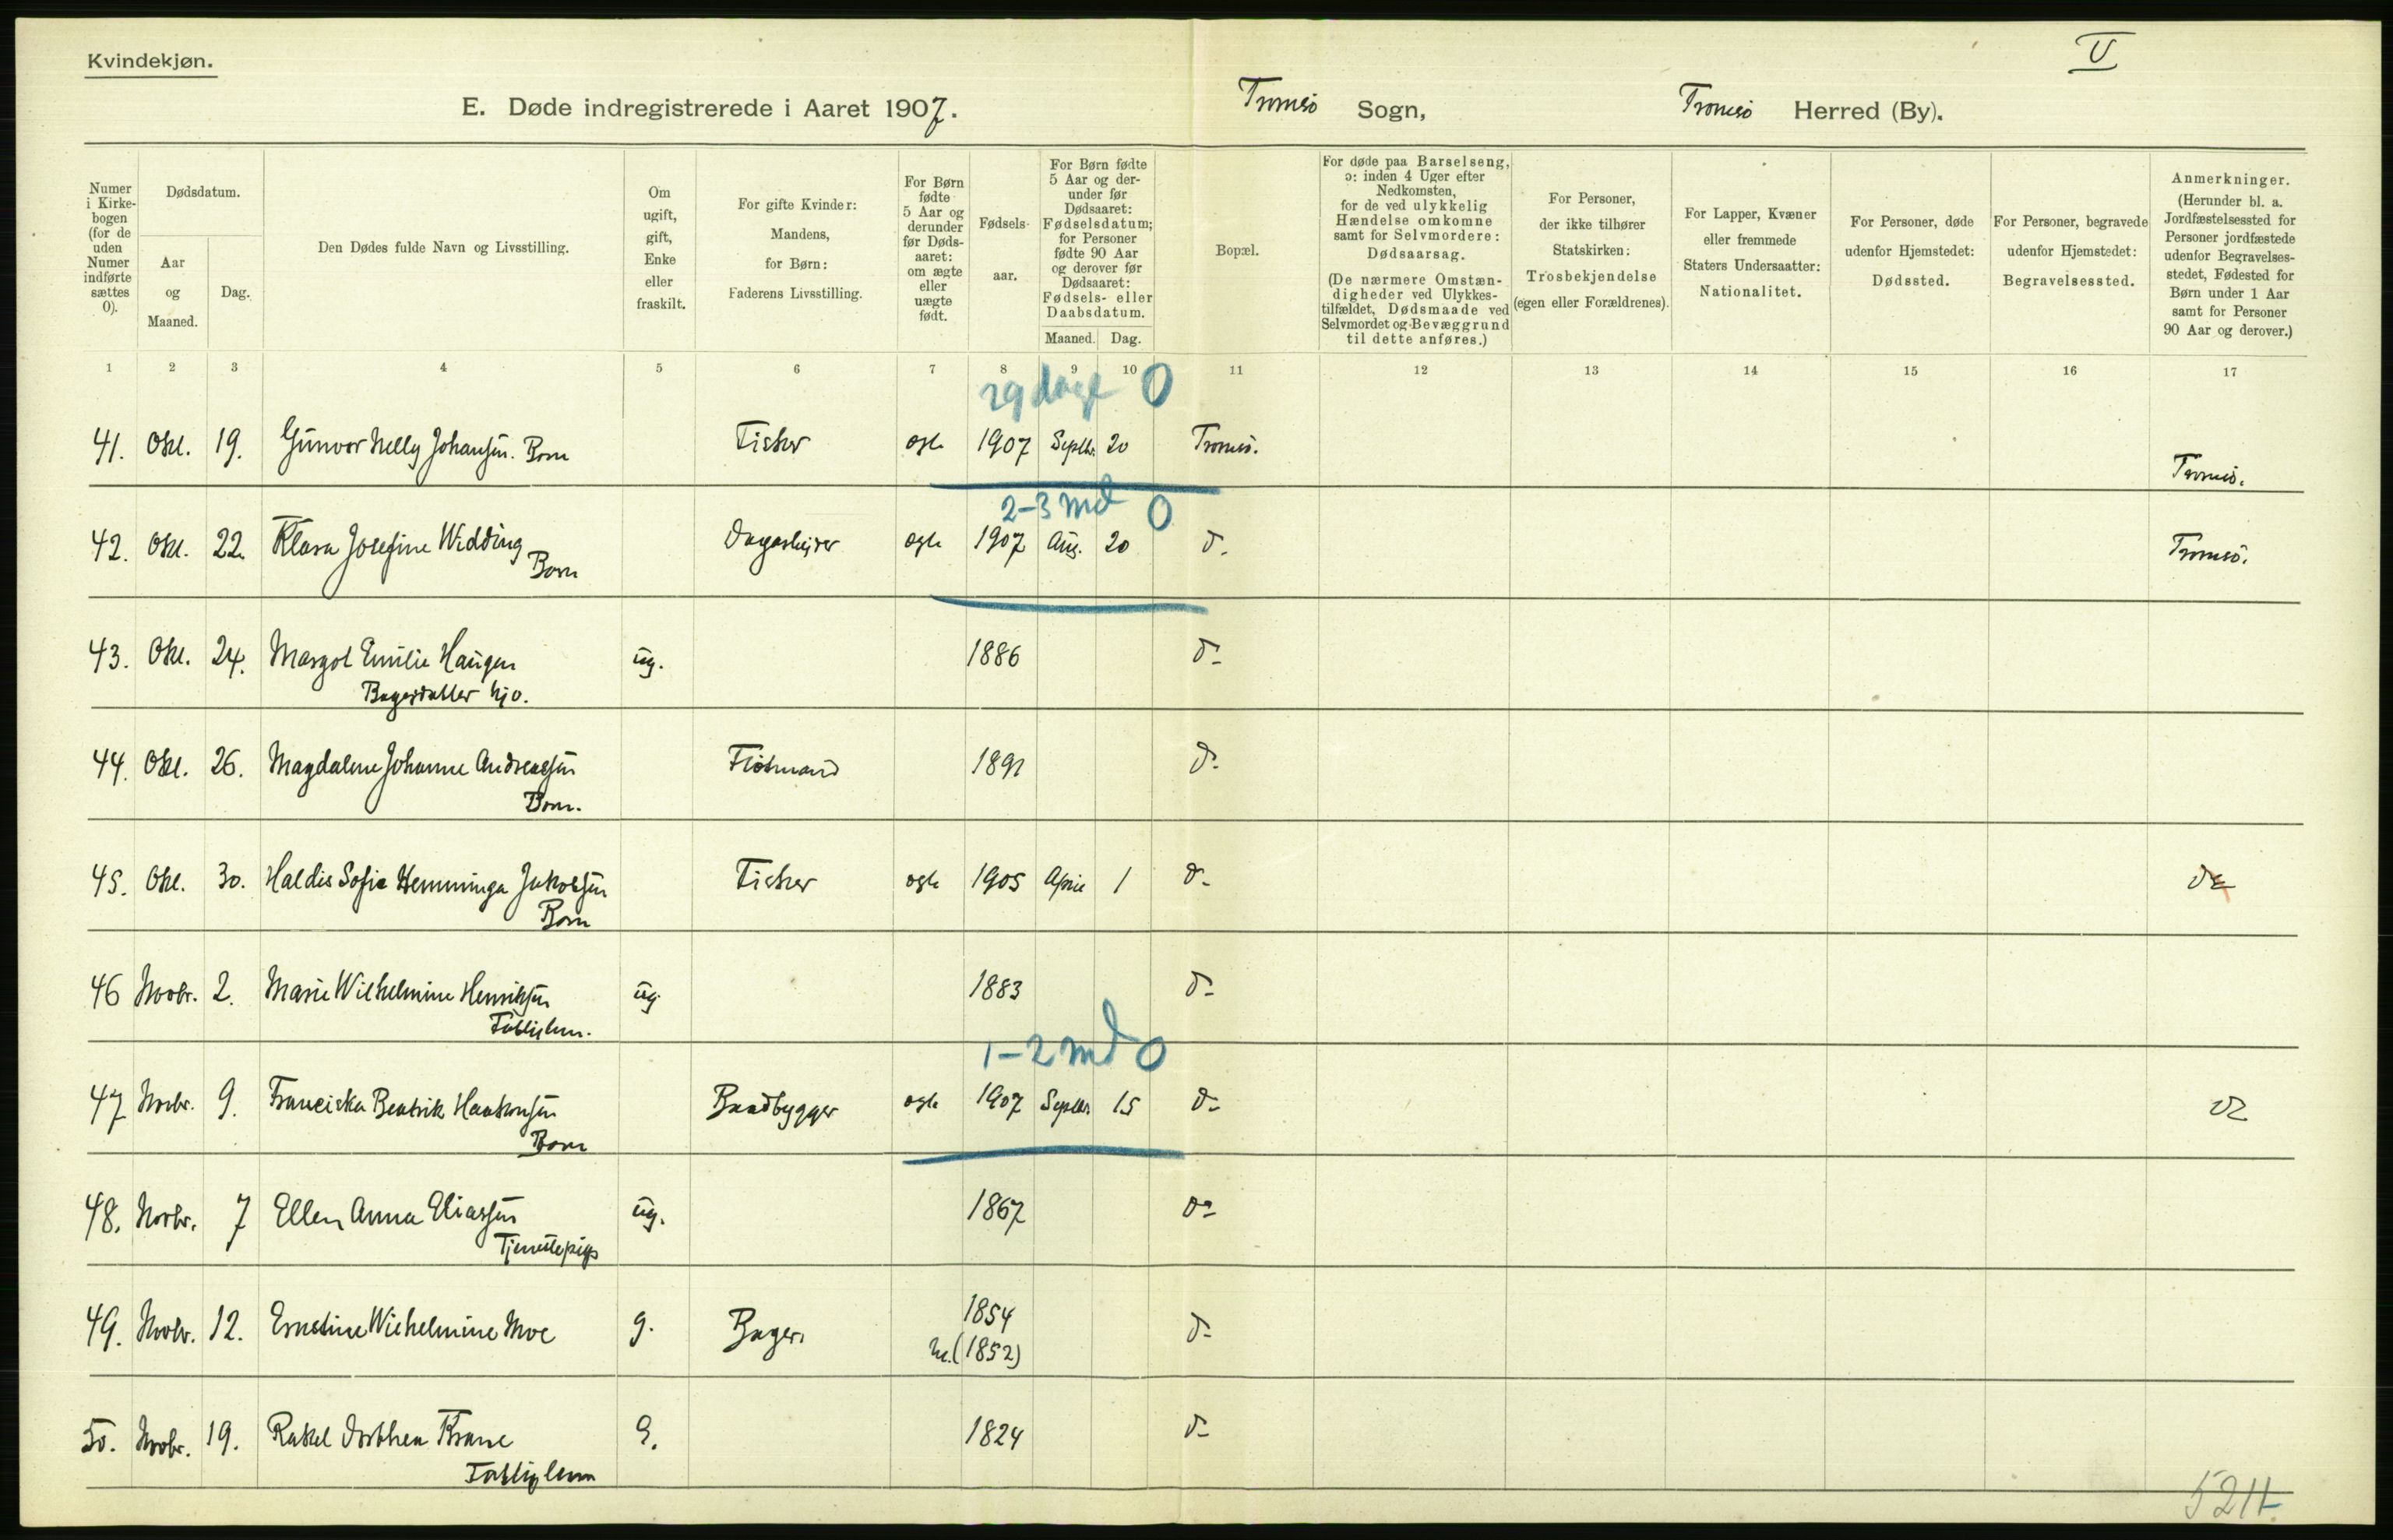 Kvindekjøn.
V
E. Døde indregistrerede i Aaret 1907.
Tromsö Sogn,
Tromsö Herred (By).
Numer i Kirke-bogen (for de uden Numer indførte sættes 0).
Dødsdatum.
Aar og Maaned.
Dag.
Den Dødes fulde Navn og Livsstilling.
Om ugift, gift, Enke eller fraskilt.
For gifte Kvinder: Mandens, for Børn: Faderens Livsstilling.
For Børn fødte 5 Aar og derunder før Døds-aaret: om ægte eller uægte født.
Fødsels-aar.
For Børn fødte 5 Aar og der-under før Dødsaaret: Fødselsdatum; for Personer fødte 90 Aar og derover før Dødsaaret: Fødsels- eller Daabsdatum.
Maaned. Dag.
Bopæl.
For døde paa Barselseng, ɔ: inden 4 Uger efter Nedkomsten, for de ved ulykkelig Hændelse omkomne samt for Selvmordere: Dødsaarsag.
(De nærmere Omstæn-digheder ved Ulykkes-tilfældet, Dødsmaade ved Selvmordet og Bevæggrund til dette anføres.)
For Personer, der ikke tilhører Statskirken: Trosbekjendelse (egen eller Forældrenes).
For Lapper, Kvæner eller fremmede Staters Undersaatter: Nationalitet.
For Personer, døde udenfor Hjemstedet: Dødssted.
For Personer, begravede udenfor Hjemstedet: Begravelsessted.
Anmerkninger. (Herunder bl. a. Jordfæstelsessted for Personer jordfæstede udenfor Begravelses-stedet, Fødested for Børn under 1 Aar samt for Personer 90 Aar og derover.)
1 2 3 4 5 6 7 8 9 10 11 12 13 14 15 16 17
29 dage 0
41. Okt. 19. Gunvor Nelly Johansen. Barn Fisker ægte 1907 Septbr. 20 Tromsö. Tromsö.
2-3 md 0
42. Okt. 22. Klara Josefine Widding Barn Dagarbejder ægte 1907 Aug. 20 do Tromsö.
43. Okt. 24. Margot Emilie Haugen ug. 1886 do
Bagerdatter hj.
44. Okt. 26. Magdalene Johanne Andreassen Flötmand 1891 do
Barn.
45. Okt. 30. Haldis Sofie Hemminga Jakobsen Fisker ægte 1905 April 1 do do
Barn
46 Novbr. 2. Marie Wilhelmine Henriksen ug. 1883 do
Fattiglem.
1-2 md 0
47 Novbr. 9. Franciska Beatrik Haakonsen Baadbygger ægte 1907 Septbr. 15 do do
Barn
48. Novbr. 7 Ellen Anna Eliassen ug. 1867 do
Tjenestepige
49. Novbr. 12. Ernstine Wilhelmine Moe g. Bager. 1854 do
(1852)
50. Novbr. 19. Rakel Dorthea Krane 1824 do
Fattiglem